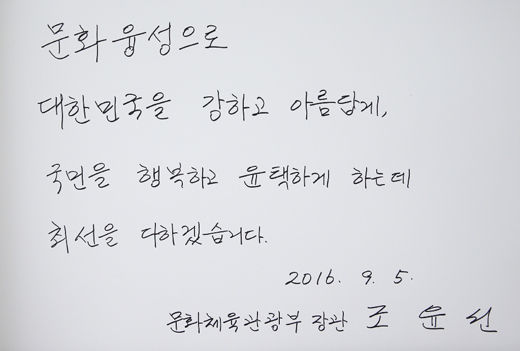 문화융성으로
대한민국을 강하고 아름답게,
국민을 행복하고 윤택하게 하는데
최선을 다하겠습니다.
2016. 9. 5.
문화체육관광부 장관 조 윤 선